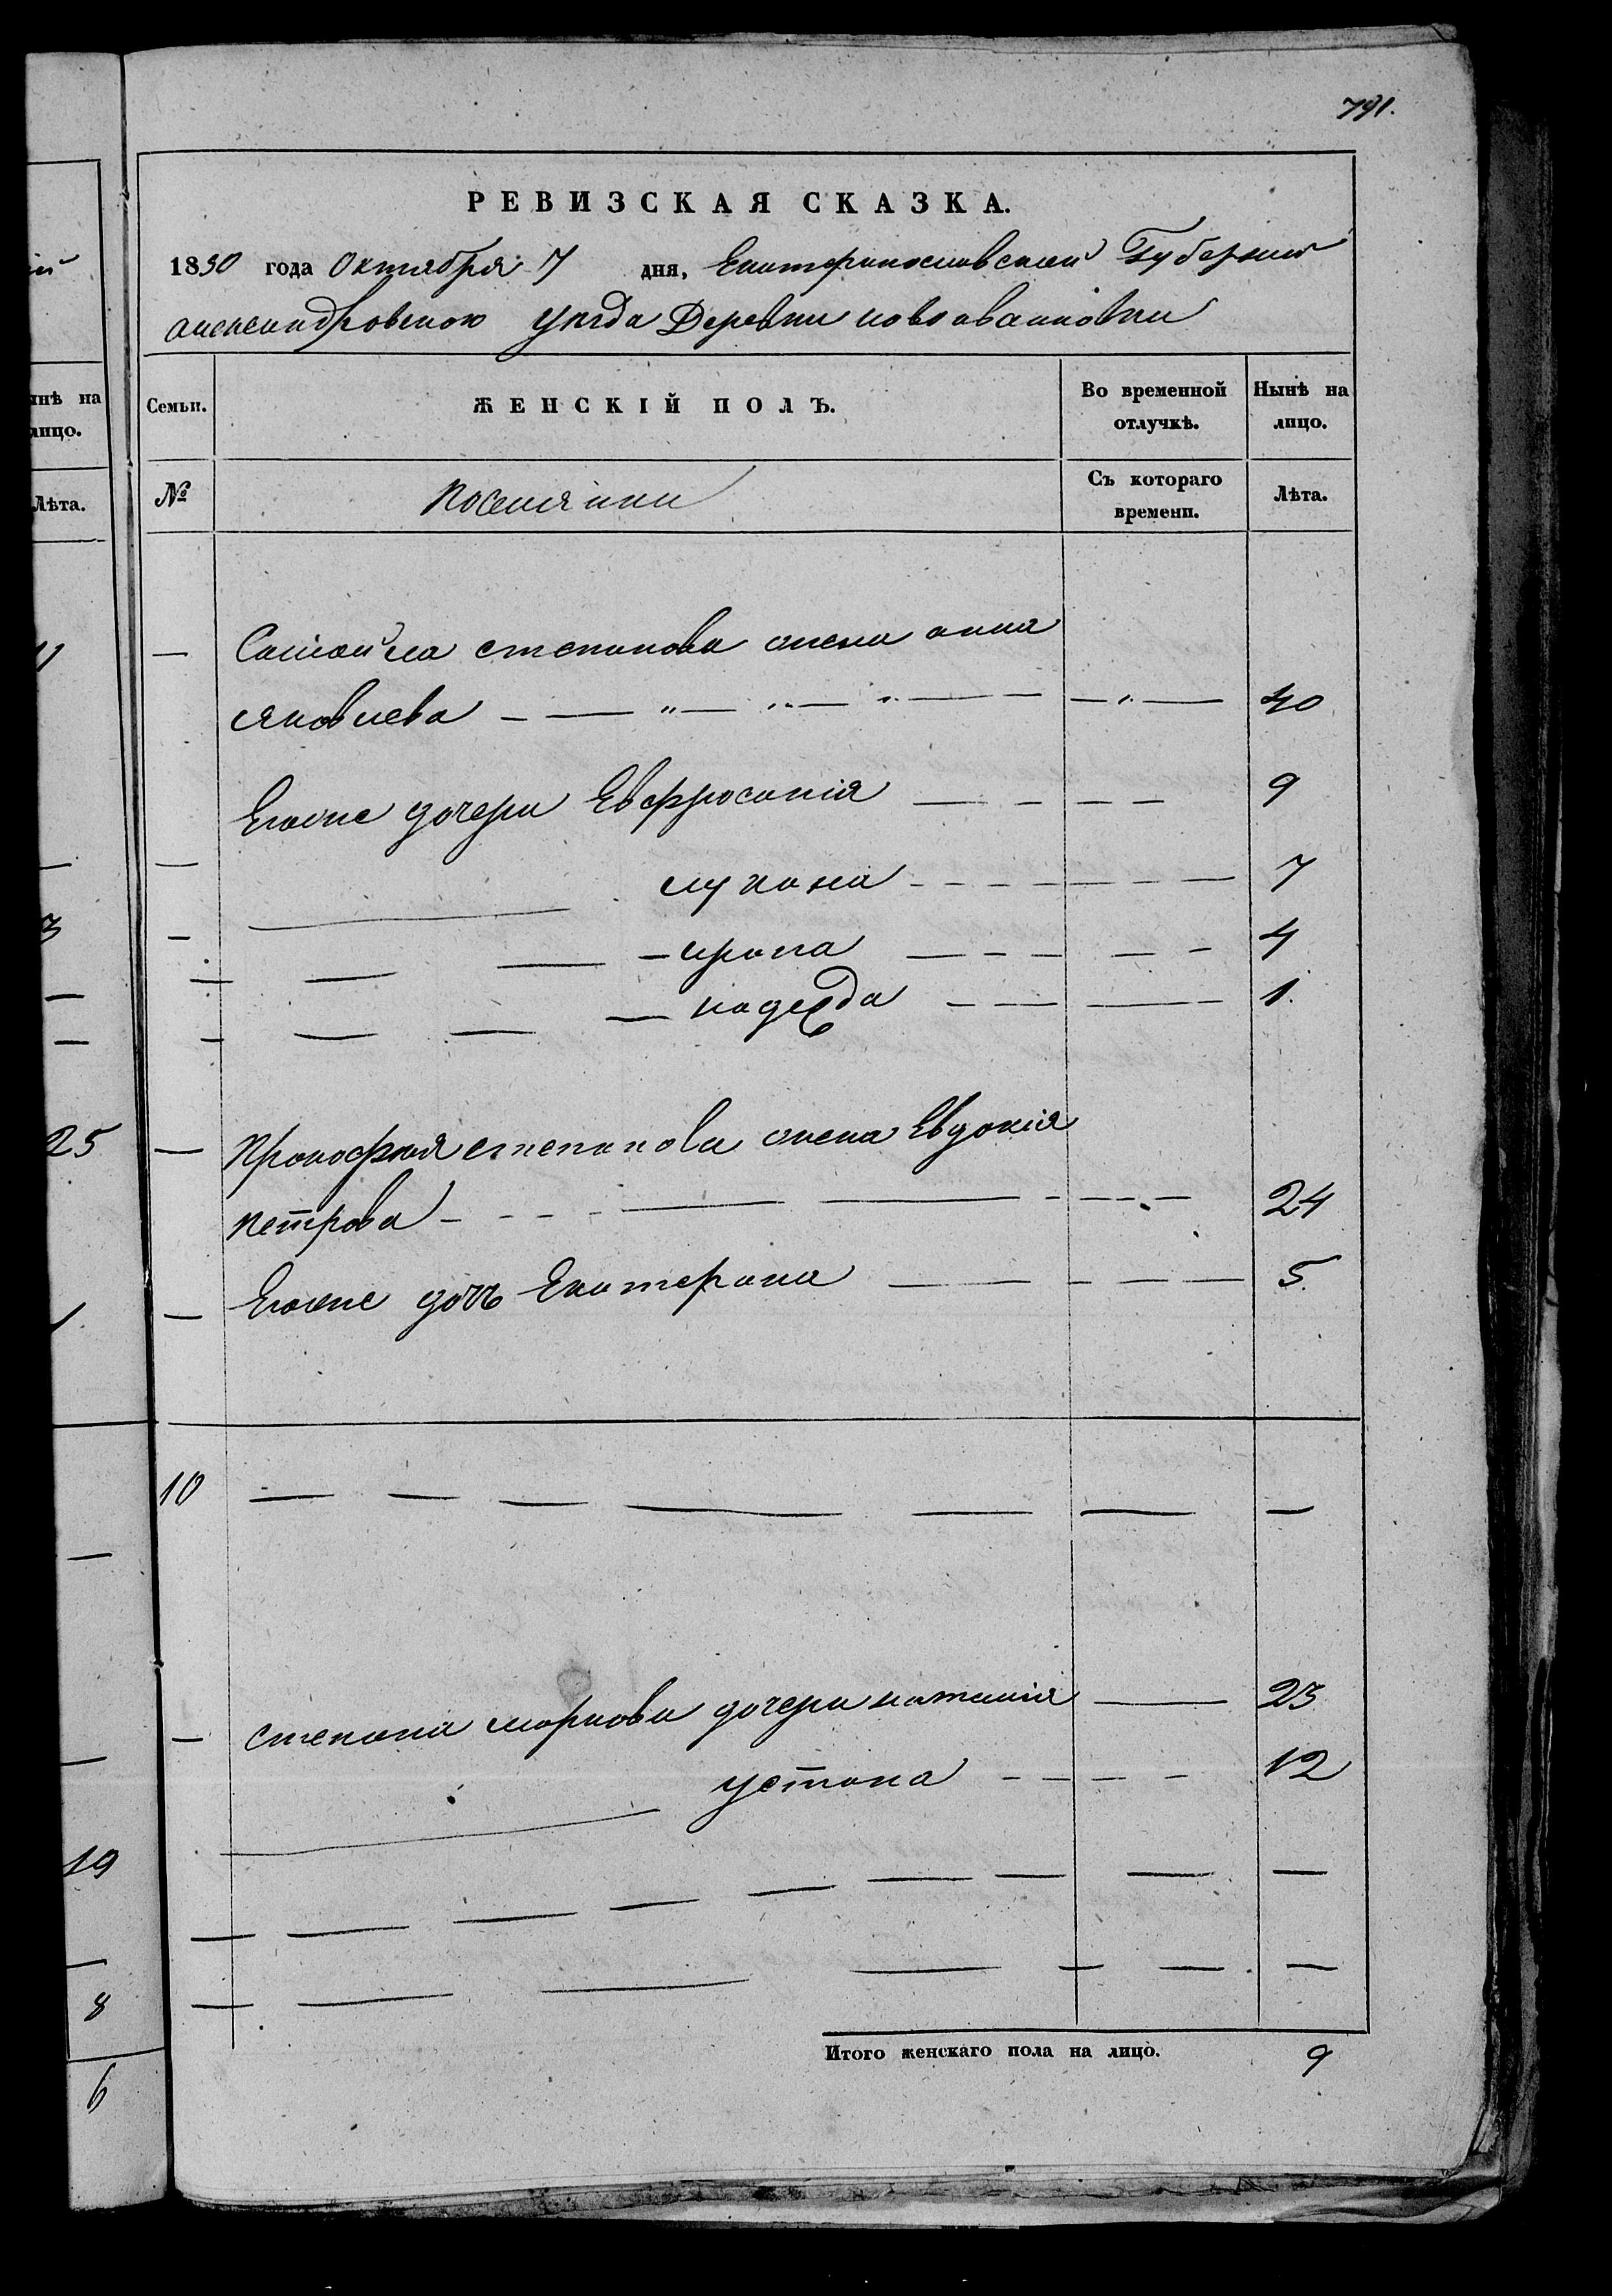 791.
РЕВИЗСКАЯ СКАЗКА.
1850 года Октября 7 дня, Екатеринославской Губернии
александровского уезда Деревни новоивановки
Семьи. ЖЕНСКІЙ ПОЛЪ. Во временной отлучкѣ. Нынѣ на лицо.
№ поселянки Съ котораго времени. Лѣта.
— Самойла степанова жена анна
яковлева — — " — " — " — — — " — 40
Егоже дочери Евфросинія — — — — 9
— лукія — — — — 7
— ирина — — — — 4
— надежда — — — 1.
— Прокофия степанова жена Евдокия
петрова — — — — 24
— Егоже дочь Екатерина — — — — 5.
10 — — — — — — —
— степана маркова дочери наталия — 23
устина — — — — 12
— — — — — — — — —
— — — — — — —
Итого женскаго пола на лицо. 9
ій
ынѣ на
лицо.
Лѣта.
11
—
3
—
—
25
1
—
—
19
—
8
6